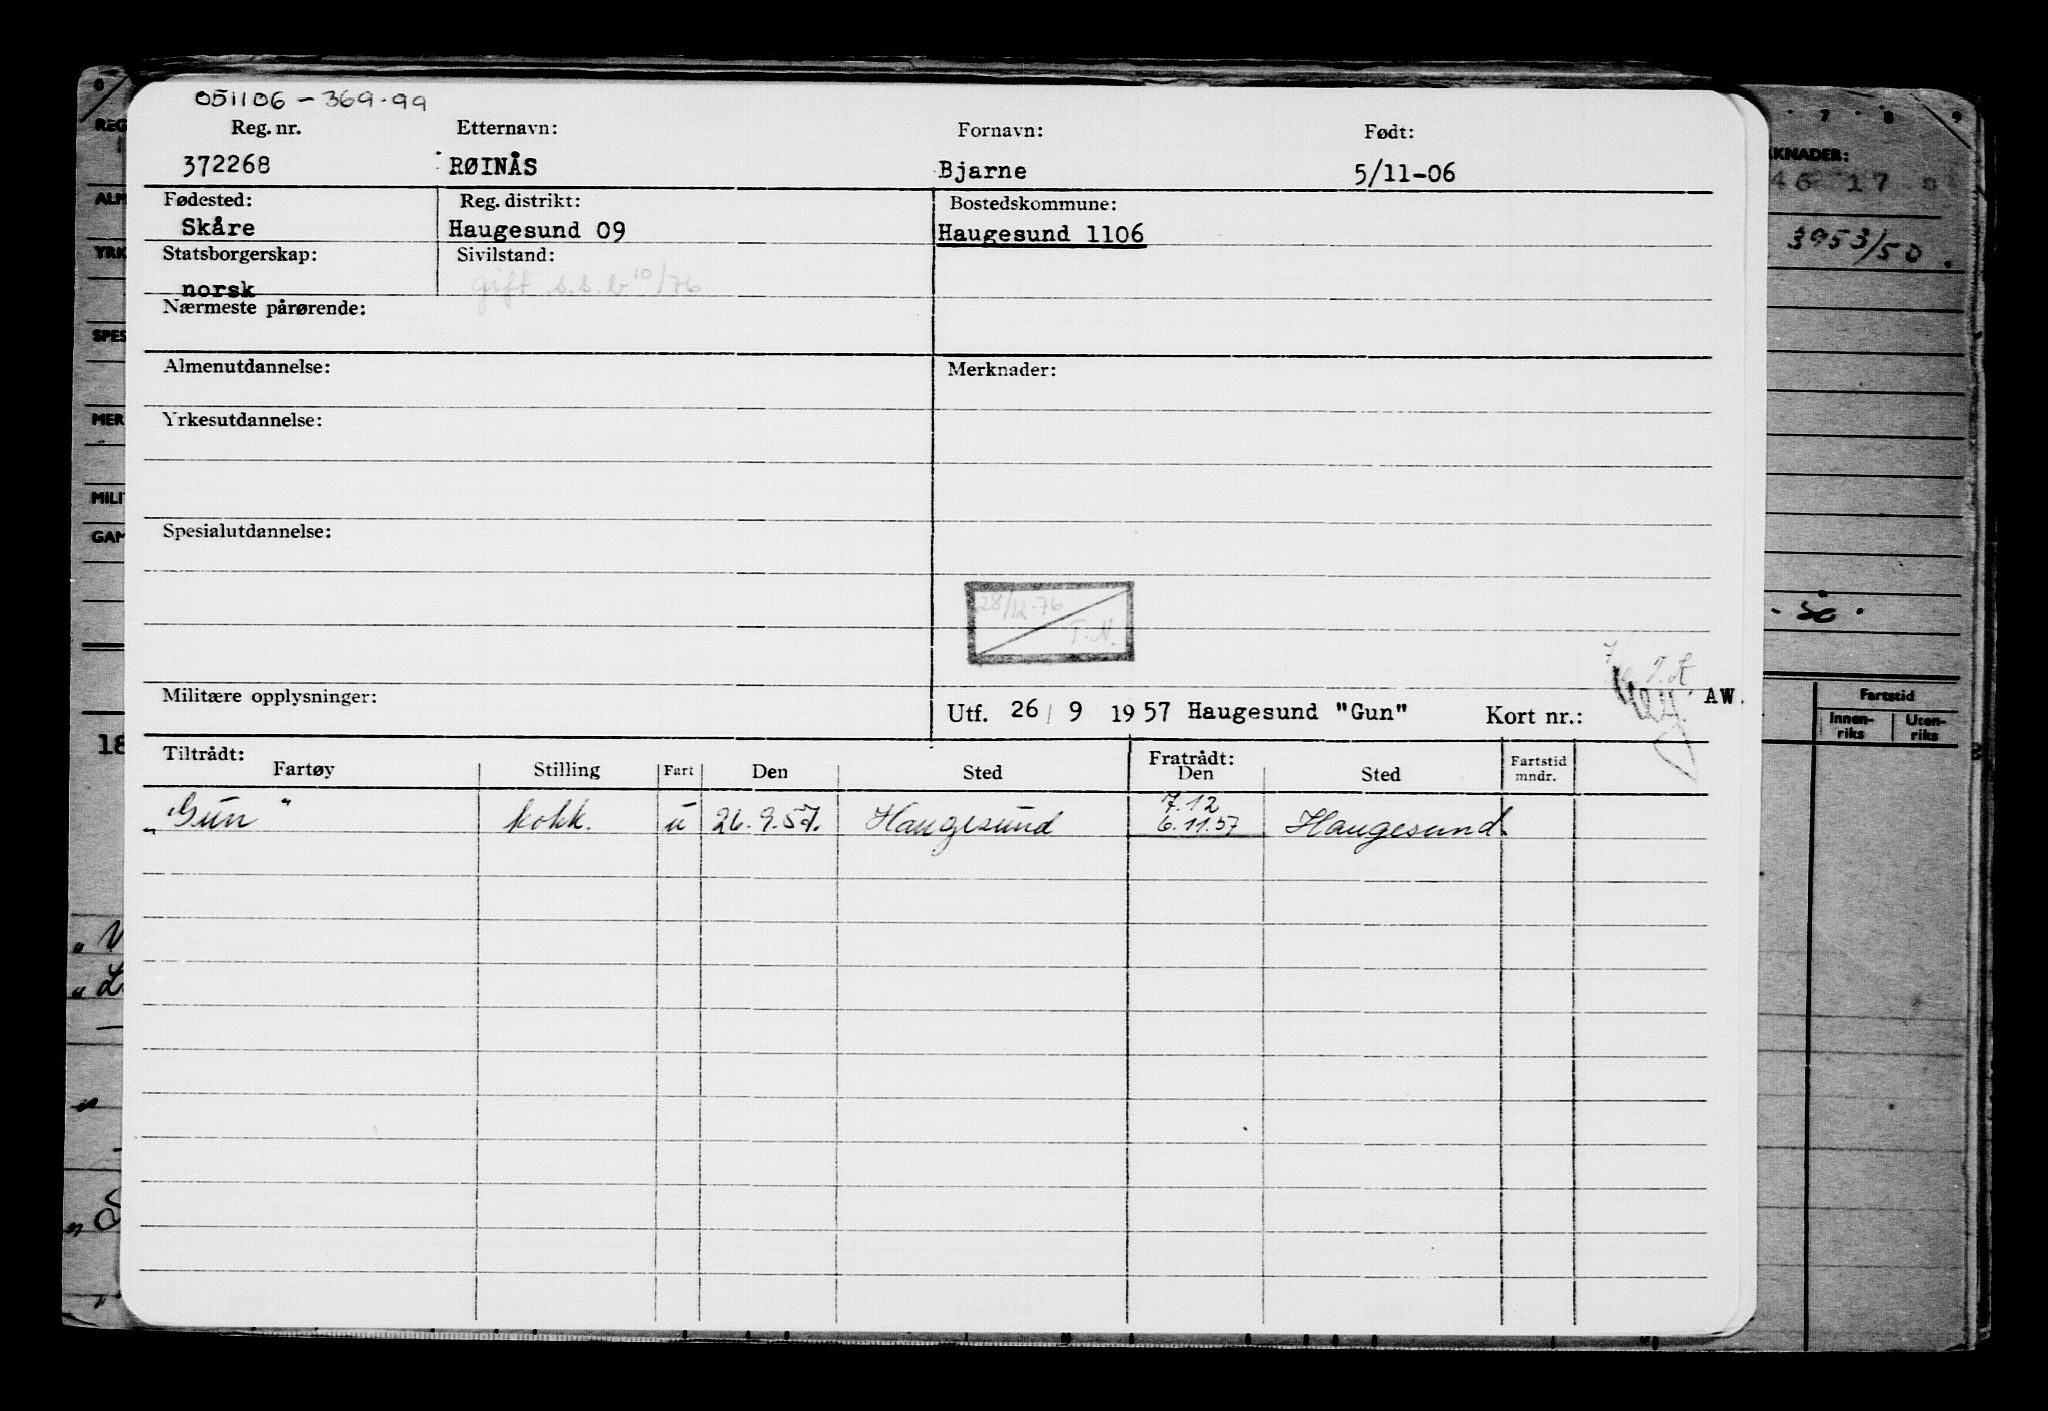 051106-369.99
Reg. nr. Etternavn: Fornavn: Født:
372268 RØINÅS Bjarne 5/11-06
Fødested: Reg. distrikt: Bostedskommune:
Skåre Haugesund 09 Haugesund 1106
Statsborgerskap: Sivilstand:
norsk gift s.s.b 10/76
Nærmeste pårørende:
Almenutdannelse: Merknader:
Yrkesutdannelse:
Spesialutdannelse:
28/12-76
T.N.
Militære opplysninger:
Utf. 26/ 9 1957 Haugesund "Gun" Kort nr.: AW.
Tiltrådt: Fratrådt:
Fartøy Stilling Fart Den Sted Den Sted Fartstid mndr.
7.12
"Gun" kokk. u 26.9.57. Haugesund 6.11.57 Haugesund.
REG
ALM
YRK
SPES
MER
MILI
GAM
18
7 8 9
KNADER:
46 17 0
3953/50.
Fartstid
Innen-riks Uten-riks